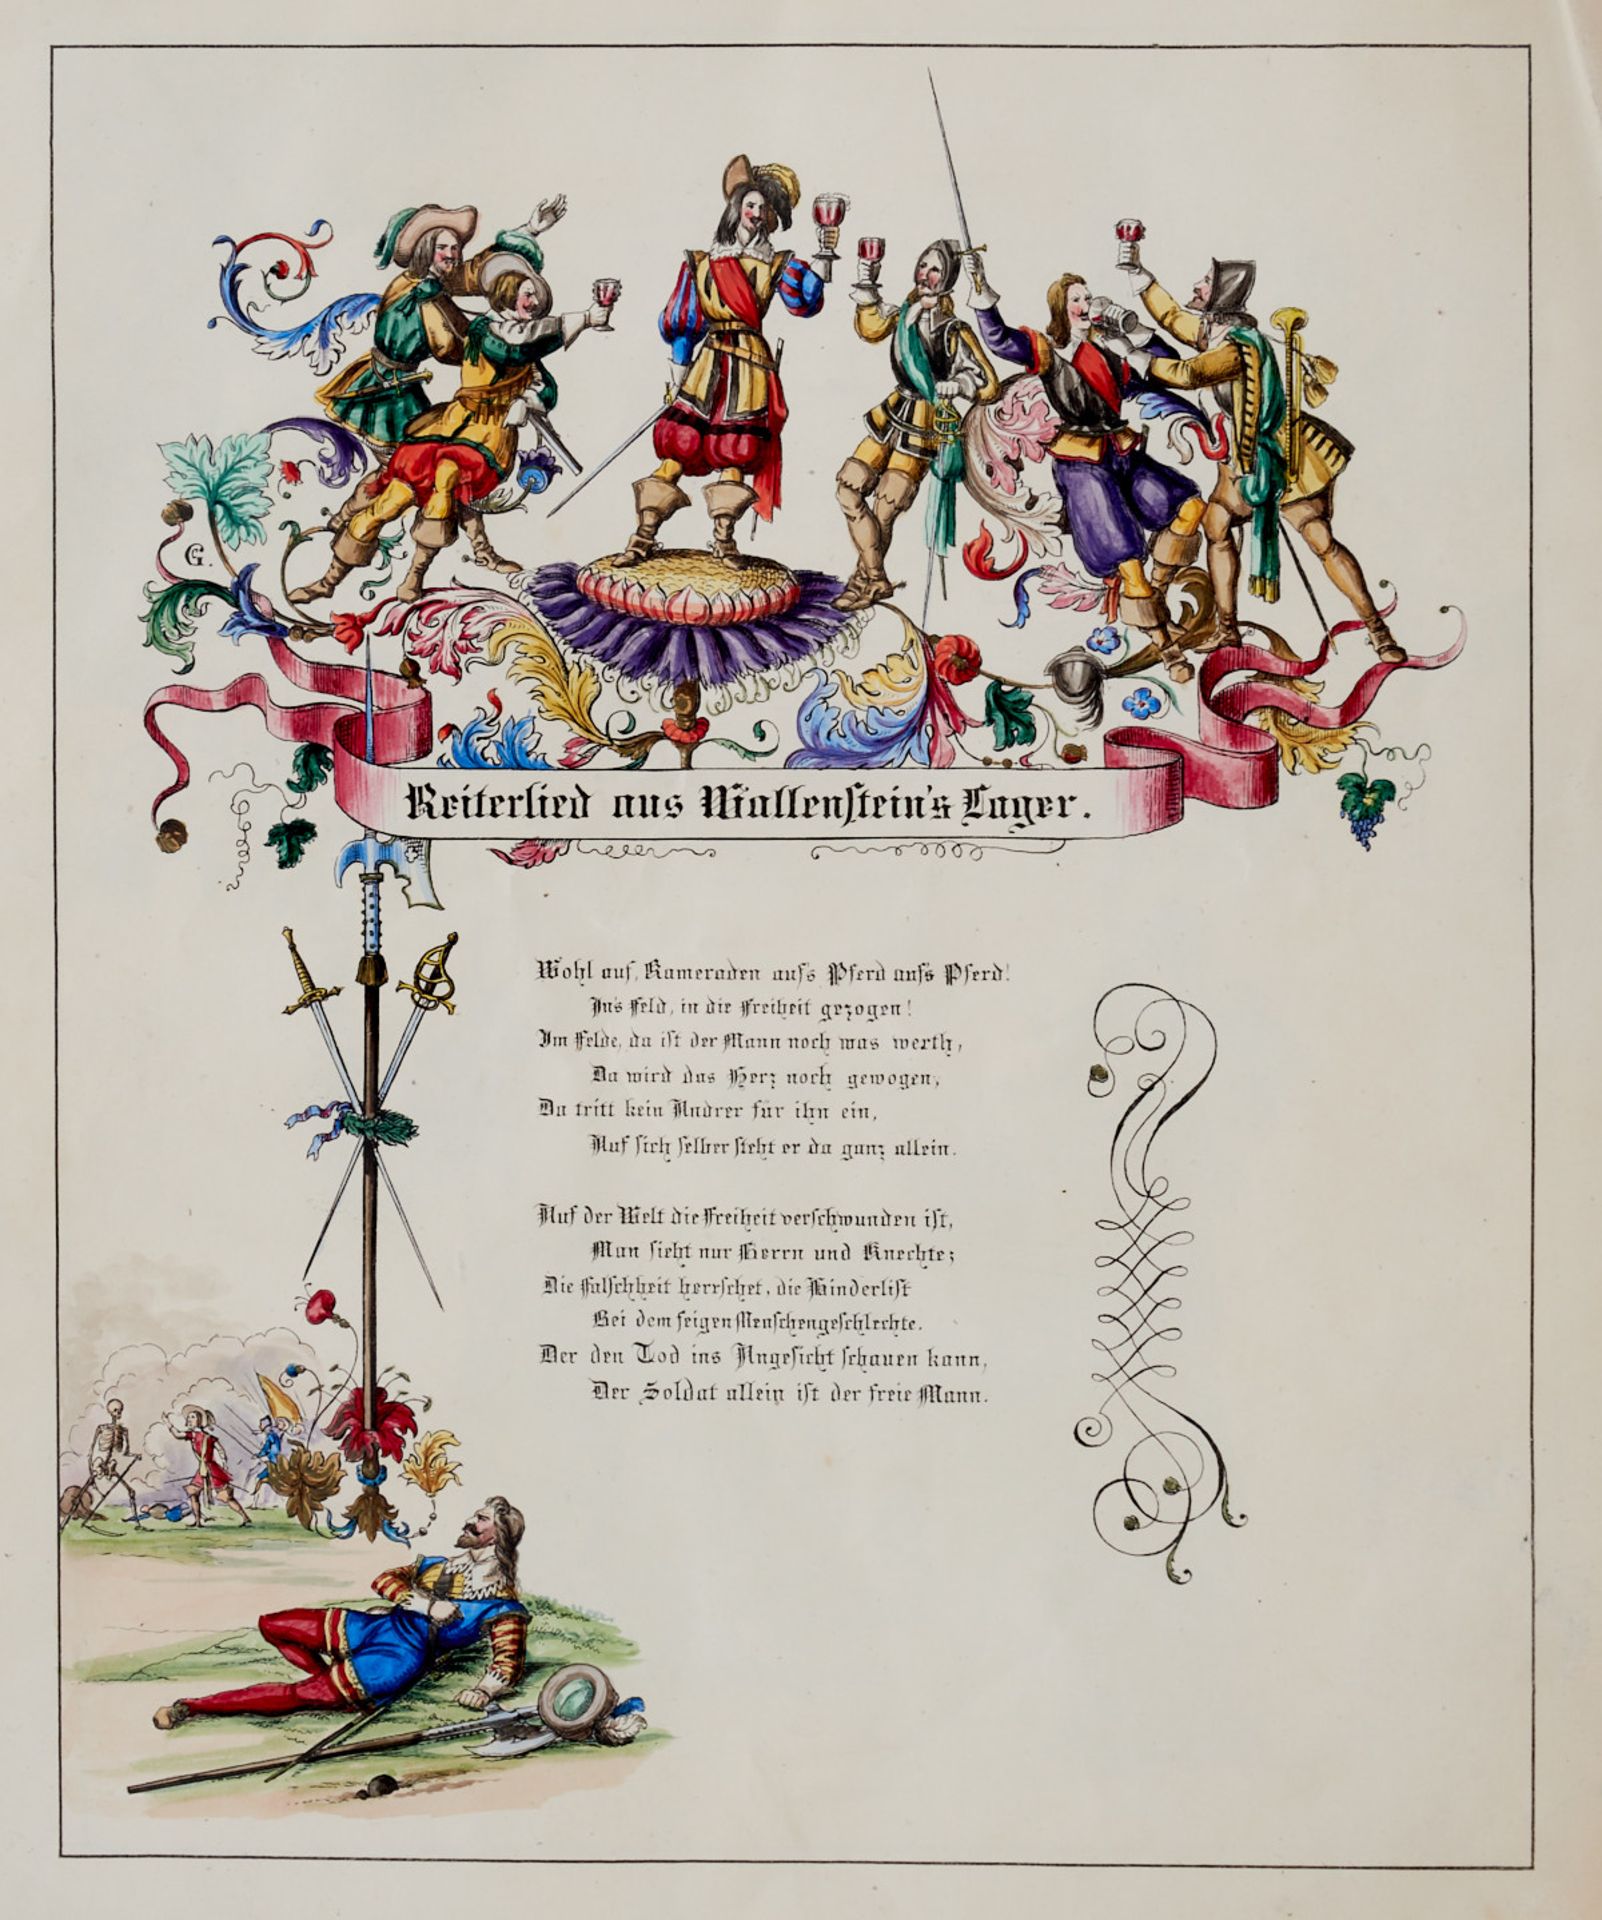 G.
Reiterlied aus Wallenstein's Lager.
Wohl auf, Kameraden auf's Pferd auf's Pferd!
In's Feld, in die Freiheit gezogen!
Im Felde, da ist der Mann noch was werth,
Da wird das Herz noch gewogen,
Da tritt kein Andrer für ihn ein,
Auf sich selber steht er da ganz allein.
Auf der Welt die Freiheit verschwunden ist,
Man sieht nur Herrn und Knechte;
Die Falschheit herrschet, die Hinderlist
Bei dem feigen Menschengeschlechte.
Der den Tod ins Angesicht schauen kann,
Der Soldat allein ist der freie Mann.